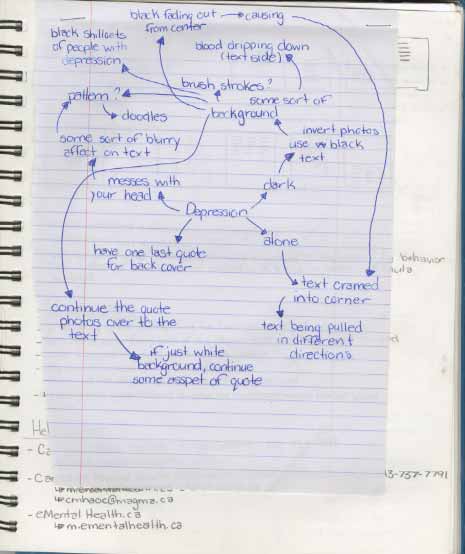 black fading out → causing
from center
black shillouts
of people with
depression
blood dripping down
(text side)
brush strokes?
pattern?
some sort of
background
doodles
some sort of blurry
affect on text
invert photos
use w black
text
messes with
your head
dark
Depression
have one last quote
for back cover
alone
behavior
text cramed
into corner
continue the quote
photos over to the
text
text being pulled
in different
directions
if just white
background, continue
some asspet of quote
Hel
- Ca
- Ca
3-737-7791
cmhaoc@magma.ca
- eMental Health.ca
m.ementalhealth.ca